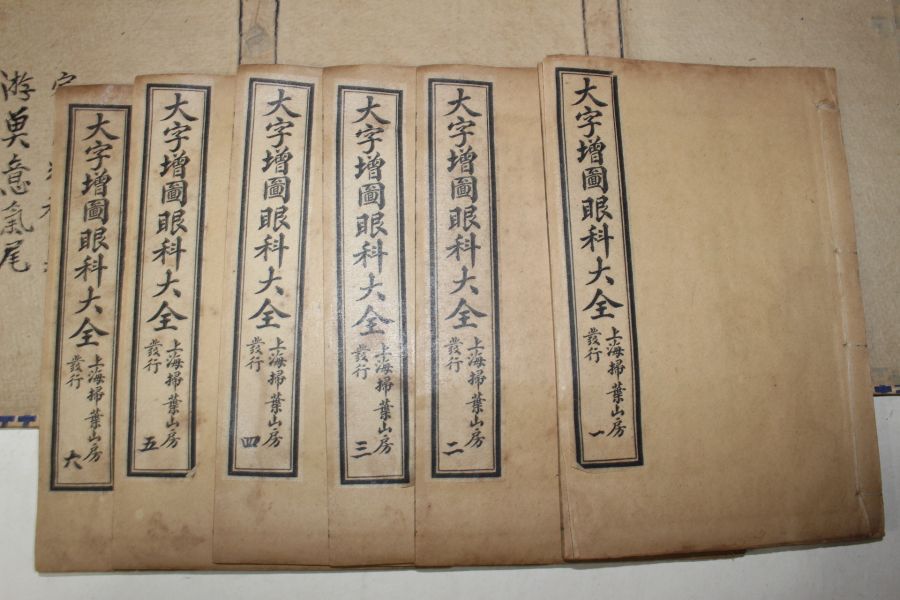 大字增圖眼科大全
上海掃葉山房
發行
一
大字增圖眼科大全
上海掃葉山房
發行
二
大字增圖眼科大全
上海掃葉山房
發行
三
大字增圖眼科大全
上海掃葉山房
發行
四
大字增圖眼科大全
上海掃葉山房
發行
五
大字增圖眼科大全
上海掃葉山房
發行
六
意氣尾